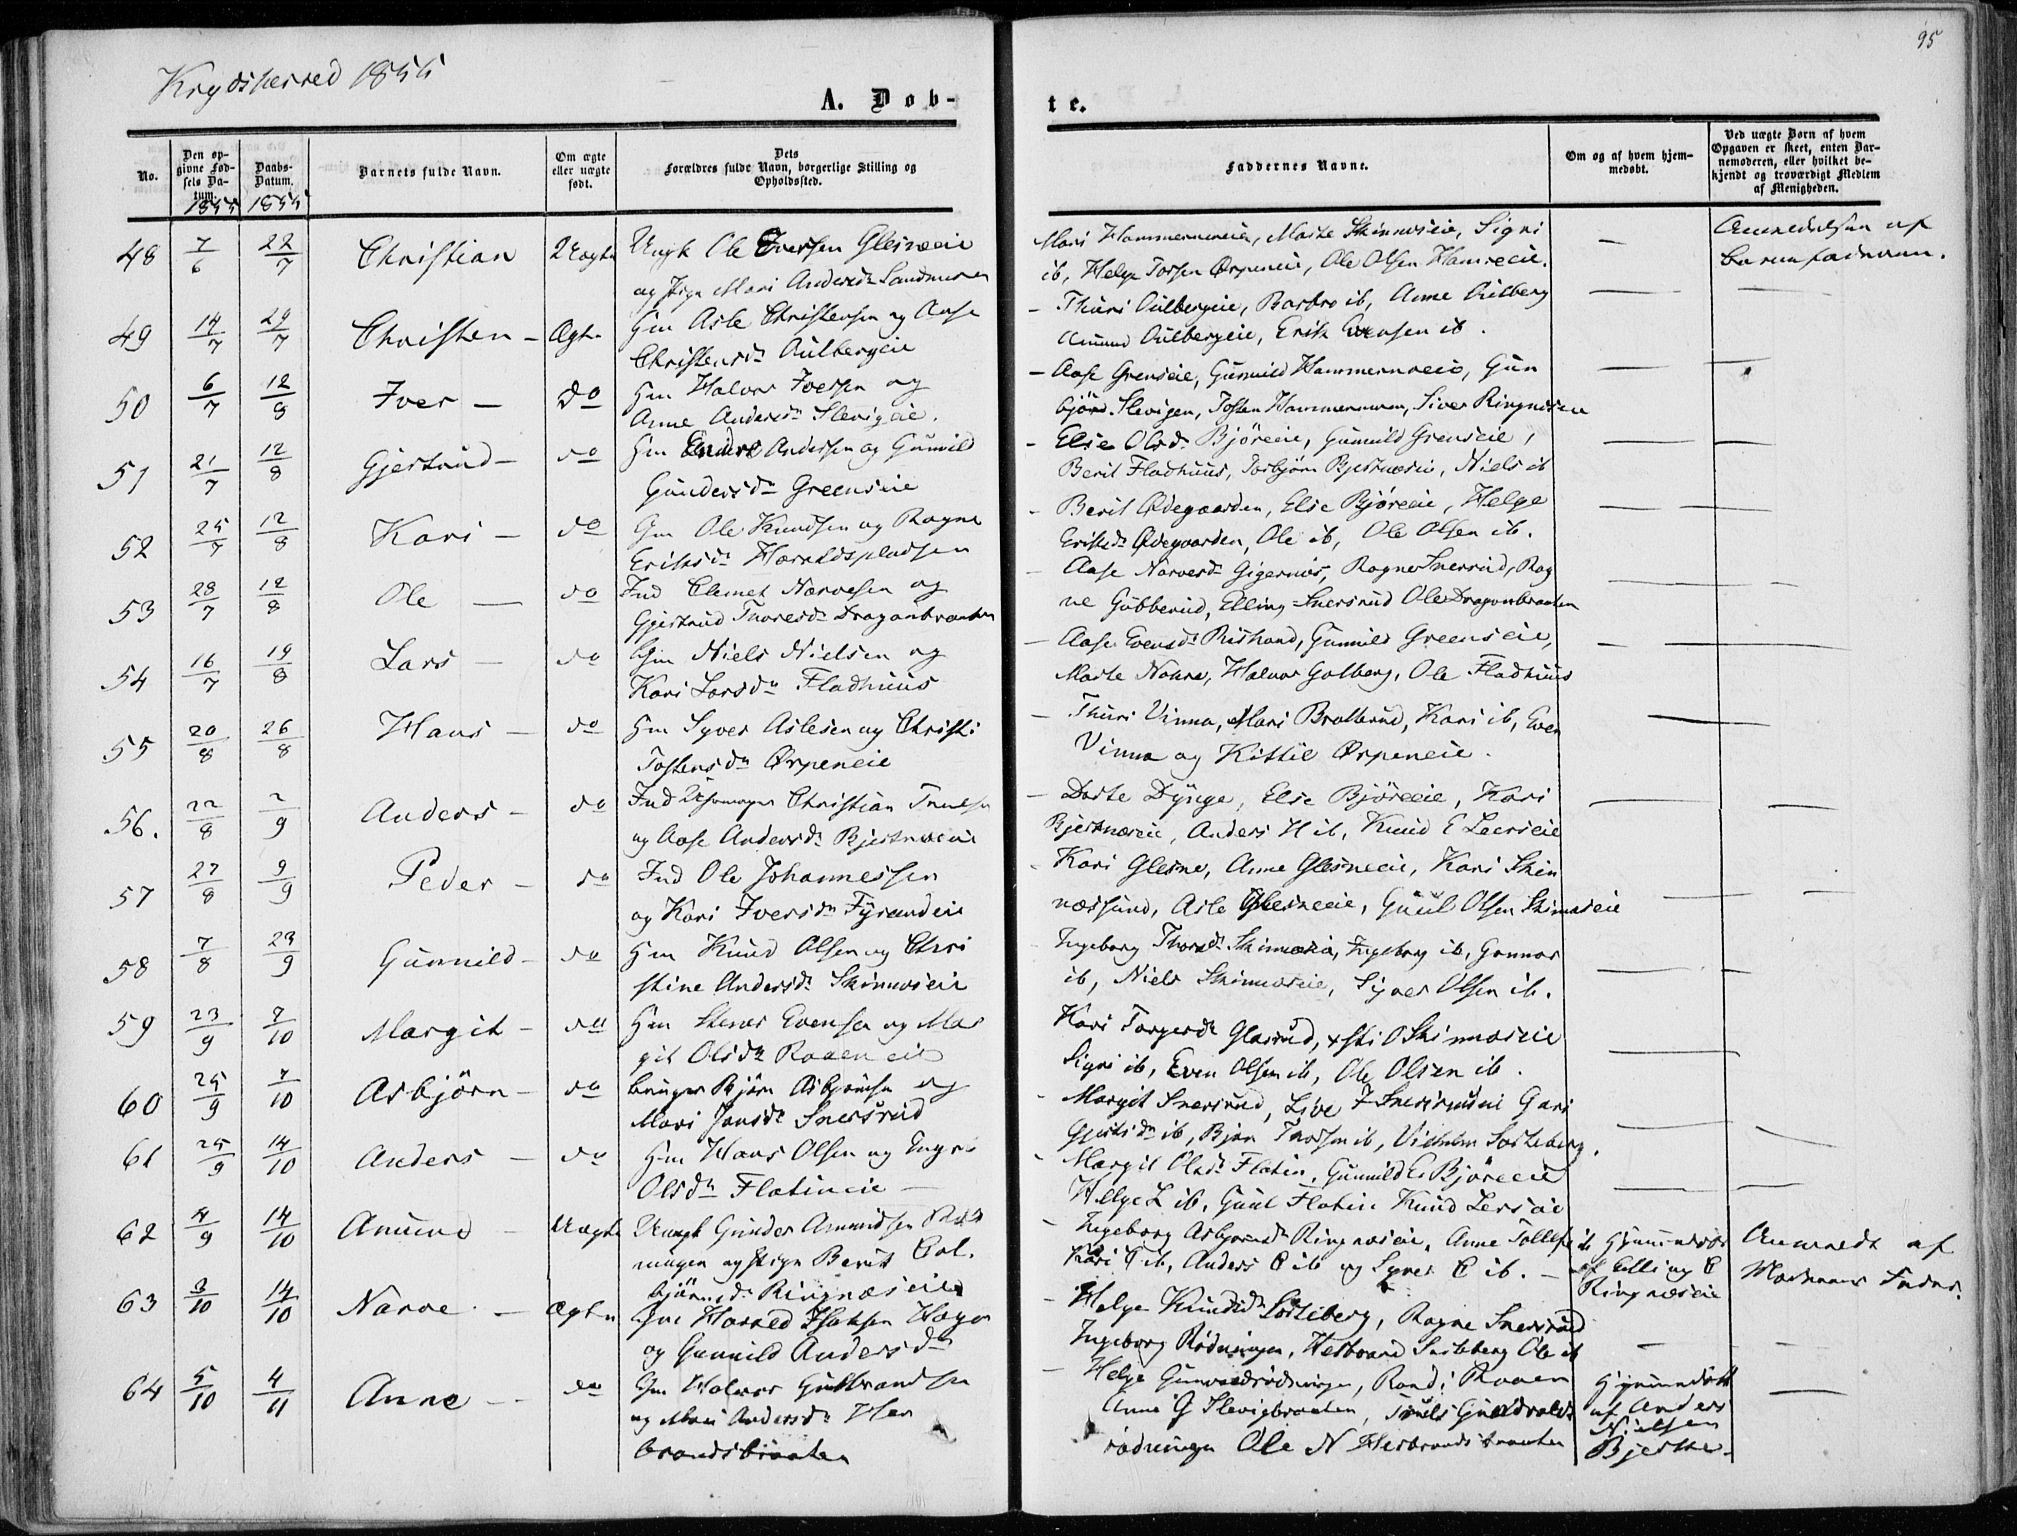 95
Krydsherred 1855
A. Døb-
te.
No.
Den op-
givne Fød-
sels Da-
tum.
1855
Daabs-
Datum.
1855
Barnets fulde Navn.
Om ægte
eller uægte
født.
Dets
Forældres fulde Navn, borgerlige Stilling og
Opholdssted.
Faddernes Navne.
Om og af hvem hjem-
medøbt.
Ved uægte Børn af hvem
Opgaven er skeet, enten Bar-
nemoderen, eller hvilket be-
kjendt og troværdigt Medlem
af Menigheden.
48 7/6 22/7 Christian Uægte Ungk Ole Iversen Glesneeie
og Pige Mari Andersdr Sandmoren
Mari Hammermoeie, Marte Skinnæseie, Sigri
ib, Helge Torsen Ørpeneie, Ole Olsen Hamreeie.
— Anmeldelsen af
barnefaderen.
49 14/7 29/7 Christen – Ægte Hm Asle Christensen og Aase
Christensdr Aulbergeie
– Thuri Aulbergeie, Barbro ib, Anne Aulberg
Amund Aulbergeie, Erik Evensen ib.
50 6/7 12/8 Iver – do Hm Halvor Iversen og
Anne Andersdr Slevigeie.
– Aase Grenseie, Gunnild Hammermoeie, Gun
bjør Slevigen, Tosten Hammermoen, Siver Ringnæseie
51 21/7 12/8 Gjertrud – do Hm Endre Andersen og Gunnild
Gundersdr Greenseie
– Else Olsdr Bjøreeie, Gunnild Grenseie,
Berit Fladhuus, Torbjørn Bjertnæseie, Niels ib
52 25/7 12/8 Kari – do Hm Ole Knudsen og Ragne
Eriksdr Haraldspladsen
– Berit Ødegaarden, Else Bjøreeie, Helge
Eriksdr Ødegaarden, Ole ib, Ole Olsen ib.
53 28/7 12/8 Ole – do Ind Clemet Narvesen og
Gjertrud Thoresdr Dragonbraaten
– Aase Narvesdr Gigernæs, Ragne Snersrud, Rag
ne Gubberud, Elling Snersrud Ole Dragonbraaten
54 16/7 19/8 Lars – do Hm Niels Nielsen og
Kari Larsdr Fladhuus
– Aase Evensdr Ristrand, Gunnild Greenseie,
Marte Nohre, Halvor Golberg, Ole Fladhuus
55 20/8 26/8 Hans – do Hm Syver Aslesen og Christi
Tostensdr Ørpeneie
– Thuri Vinna, Mari Bratterud, Kari ib, Even
Vinna og Kittil Ørpeneie.
56. 22/8 2/9 Anders – do Ind Christian Truls
og Aase Andersdr Bjertnæseie
– Dorte Dynge, Else Bjøreeie, Kari
Bjertnæseie, Anders H ib, Knud E Leerseie
57 27/8 9/9 Peder – do Ind Ole Johannessen
og Kari Iversdr Fyrandeie
– Kari Glesne, Anne Glesneeie, Kari Skin
næssund, Asle Glesneeie, Guul Olsen Skinnæseie
58 7/8 23/9 Gunnild – do Hm Knud Olsen og Chri
stine Andersdr Skinnæseie
– Ingeborg Thorsdr Skinnæseie, Ingeborg ib, Gunnar
ib, Niels Skinnæseie, Syver Olsen ib.
59 23/9 7/10 Margit – do Hm Stener Evensen og Mar
git Olsdr Raaeneie
Kari Torgersdr Glasrud, xsti O Skinnæseie
Sigri ib, Even Olsen ib, Ole Olsen ib.
60 25/9 7/10 Asbjørn – do bruger Bjørn Asbjørnsen og
Mari Jansdr Snersrud
– Margit Snersrud, Live T Snersrudeie Guri
Gjertsdr ib, Bjørn Thorsen ib, Vilhelm Sorteberg.
61 25/9 14/10 Anders – do Hm Hans Olsen og Engri
Olsdr Flatineie
– Margit Olsdr Flatin, Gunnild E Bjøreeie
Helge L ib, Guul Flatin Knud Lerseie
62 4/9 14/10 Amund – Uægte Ungk Gunder Amundsen Rød
ningen og Pige Berit Col.
bjørnsdr Ringnæseie
– Ingeborg Asbjørnsdr Ringnæseie, Anne Tollefsdr ib
Kari C ib, Anders C ib og Syver C ib. –
Hjemmedøbt
af Elling C
Ringnæseie
Anmeldt af
Moderens Fader.
63 3/10 14/10 Narve – Ægte Gm Harald Isaksen Hage
og Gunnild Andersdr
– Helge Knudsdr Sorteberg, Ragne Snersrud
Ingeborg Rødningen, Helbrand Sorteberg Ole ib
64 5/10 4/11 Anne – do Gm Halvor Gulbrandsen
og Mari Andersdr Her
brandsbraaten
– Helge Gunvaldrødningen, Randi Raaen
Anne G Slevigbraaten, Truls Gundvalds
rødningen Ole N Herbrandsbraaten
Hjemmedøbt
af Anders
Nielsen
Bjerke.